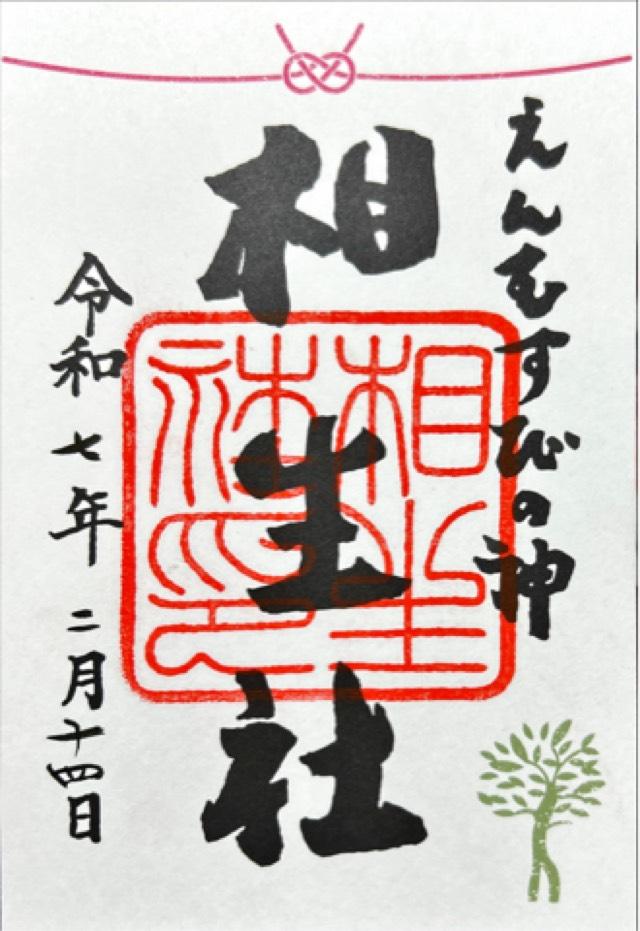 えんむすびの神
相生社
相生社印
令和七年二月十四日